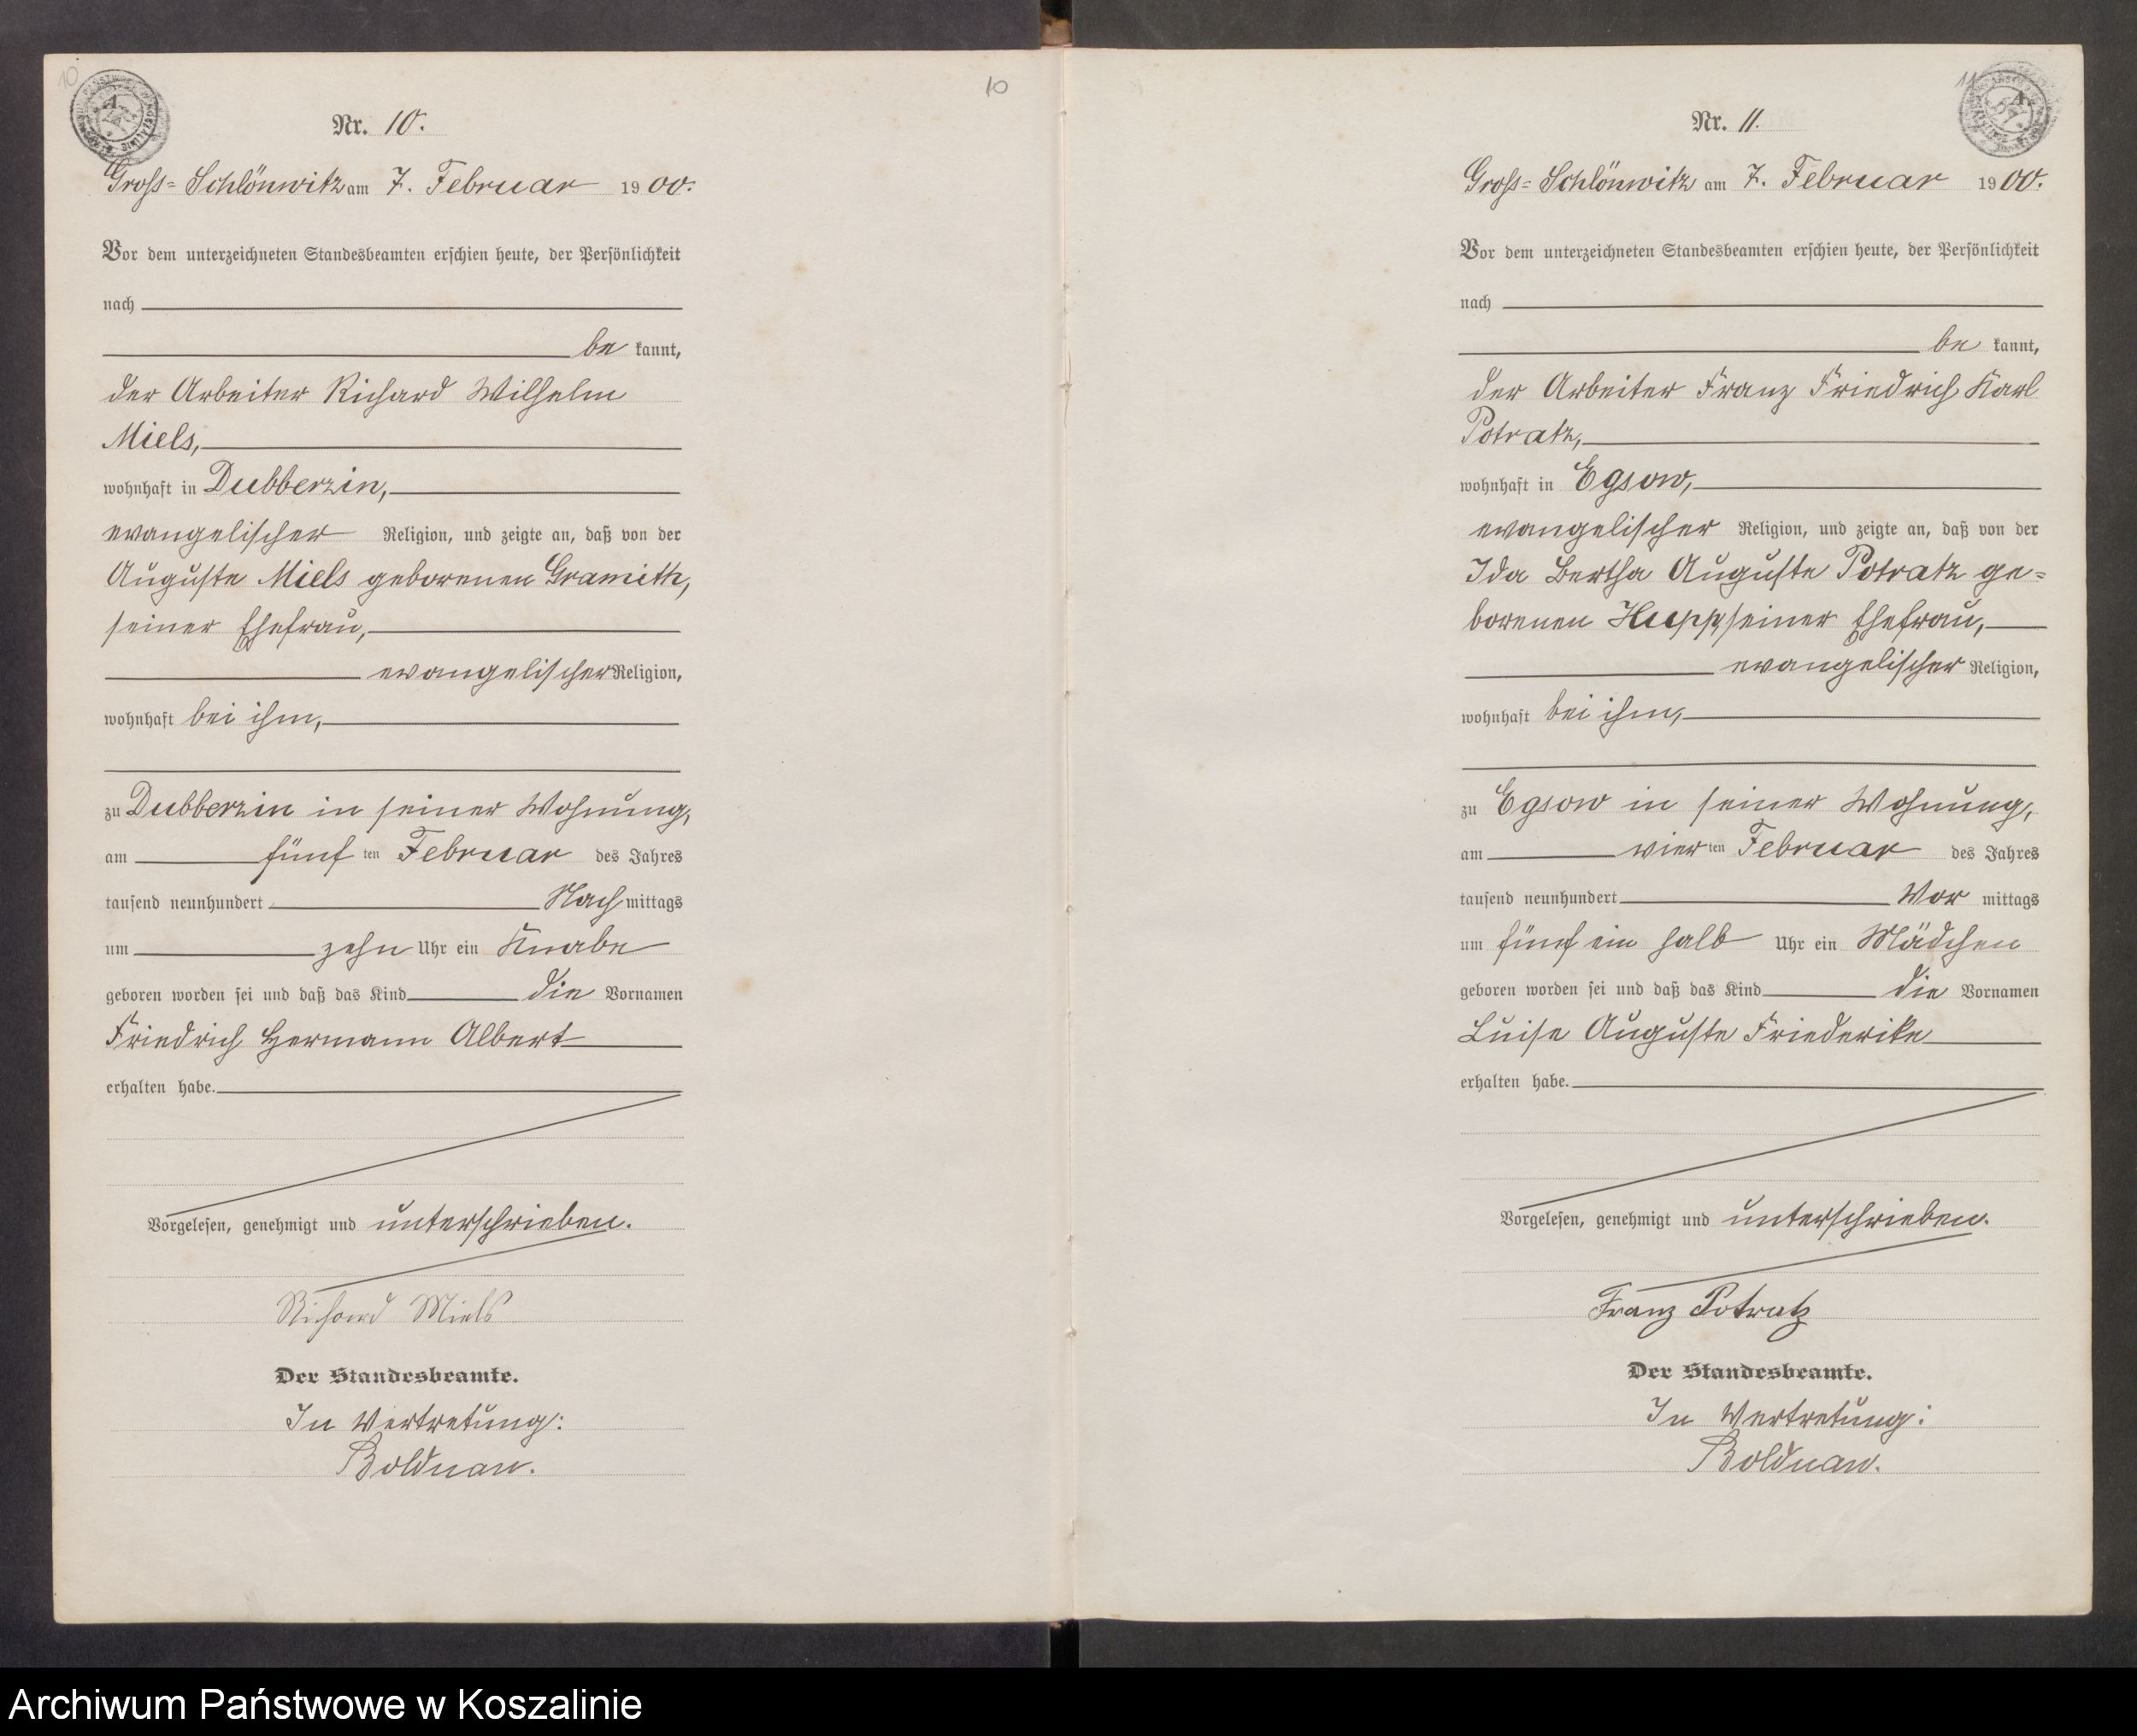 10
Nr. 10.
Groß-Schlönwitz am 7. Februar 1900.
Vor dem unterzeichneten Standesbeamten erschien heute, der Persönlichkeit
nach
bekannt,
der Arbeiter Richard Wilhelm
Miels,
wohnhaft in Dubberzin,
evangelischer Religion, und zeigte an, daß von der
Auguste Miels geborenen Gramitz,
seiner Ehefrau,
evangelischer Religion,
wohnhaft bei ihm,
zu Dubberzin in seiner Wohnung,
am fünften Februar des Jahres
tausend neunhundert Nachmittags
um zehn Uhr ein Knabe
geboren worden sei und daß das Kind die Vornamen
Friedrich Hermann Albert
erhalten habe.
Vorgelesen, genehmigt und unterschrieben.
Richard Miels
Der Standesbeamte.
In Vertretung:
Bolduan.
10
11
Nr. 11.
Groß-Schlönwitz am 7. Februar 1900.
Vor dem unterzeichneten Standesbeamten erschien heute, der Persönlichkeit
nach
bekannt,
der Arbeiter Franz Friedrich Karl
Potratz,
wohnhaft in Egsow,
evangelischer Religion, und zeigte an, daß von der
Ida Bertha Auguste Potratz ge-
borenen Hupp, seiner Ehefrau,
evangelischer Religion,
wohnhaft bei ihm,
zu Egsow in seiner Wohnung,
am vierten Februar des Jahres
tausend neunhundert Vormittags
um fünf ein halb Uhr ein Mädchen
geboren worden sei und daß das Kind die Vornamen
Luise Auguste Friederike
erhalten habe.
Vorgelesen, genehmigt und unterschrieben.
Franz Potratz
Der Standesbeamte.
In Vertretung:
Bolduan.
Archiwum Państwowe w Koszalinie